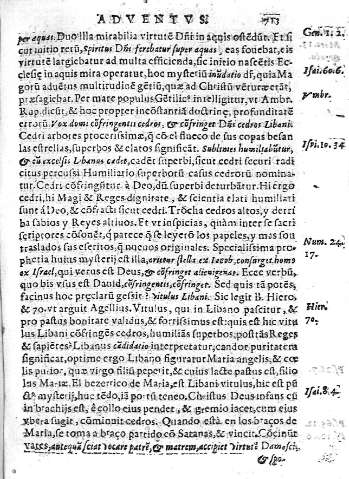 ADVENTVS. 713
per aquas. Duo illa mirabilia virtutē Dñi in aquis ostēdūt. Et si
cut initio rerū, Spiritus Dñi ferebatur super aquas, eas fouebat, eis
virtutē largiebatur ad multa efficienda, sic initio nascētis Ec-
clesiȩ in aquis mira operatur, hoc mysteriū inūdatio dř, quia Ma-
gorū aduētus multitudinē gētiū, quæ ad Christū verūt erāt,
præsagiebat. Per mare populus Gētilic⁹ intelligitur, vt Ambr.
Rup. dicūt, & hoc propter incōstantiā doctrinę, profunditatē
errorū. Vox domi cōfringentis cedros, & cōfringet Dñs cedros Libani.
Cedri arbores procerissimæ, q̄ cō el flueco de sus copas besan
las estrellas, superbos & elatos significāt. Sublimes humiliabūtur,
& cū excelsis Libanus cadet, cadēt superbi, sicut cedri securi radi-
citus percussi Humiliatio superborū casus cedrorū nomina-
tur. Cedri cōfringūtur à Deo, dū superbi deturbātur. Hi ergo
cedri, hi Magi & Reges dignitate, & scientia elati humiliati
sunt à Deo, & cōfracti sicut cedri. Trōcha cedros altos, y derri
ba sabios y Reyes altiuos. Et vt inspicias, quàm inter se sacri
scriptores cōsonēt, q̄ parece q̄ se leyerō los papeles, y mas son
traslados sus escritos, q̄ nueuos originales. Specialissima pro-
phetia huius mysterij est illa, orietur stella ex Iacob, consurget homo
ex Israel, qui verus est Deus, & cōfringet alienigenas. Ecce verbū,
quo bis vsus est Dauid, cōfringentis, cōfringet. Sed quis tā potēs,
facinus hoc pręclarū gessit? vitulus Libani. Sic legit B. Hiero,
& 70. vt arguit Agellius. Vitulus, qui in Libano pascitur, &
pro pastus bonitate validus, & fortissimus est: quis est hic vitu
lus Libani cōfringens cedros, humiliās superbos, postrās Reges
& sapiētes? Libanus cādidatio interpretatur, candor puritatem
significat, optime ergo Libano figuratur Maria angelis, & cœ-
lis purior, quæ virgo filiū peperit, & cuius lacte pastus est, filio
lus Mariæ. El bezerrico de Maria, est Libani vitulus, hic est pū
ctū mysterij, huc tēdo, iā portū teneo. Christus Deus infans cū
in brachijs est, è collo eius pendet, & gremio iacet, cum eius
vbera sugit, cōminuit cedros. Quando està en los braços de
Maria, se toma a braço partido cō Satanas, & vincit. Cōcinūt
vates, antequā sciat vocare patrē, & matrem, accipiet virtutē Damasci,
& spo-
Gen. 1. 2.
Isai. 60. 6.
Ambr.
Isai. 10. 34
Num. 24.
17.
Hier.
70.
Isai. 8. 4.